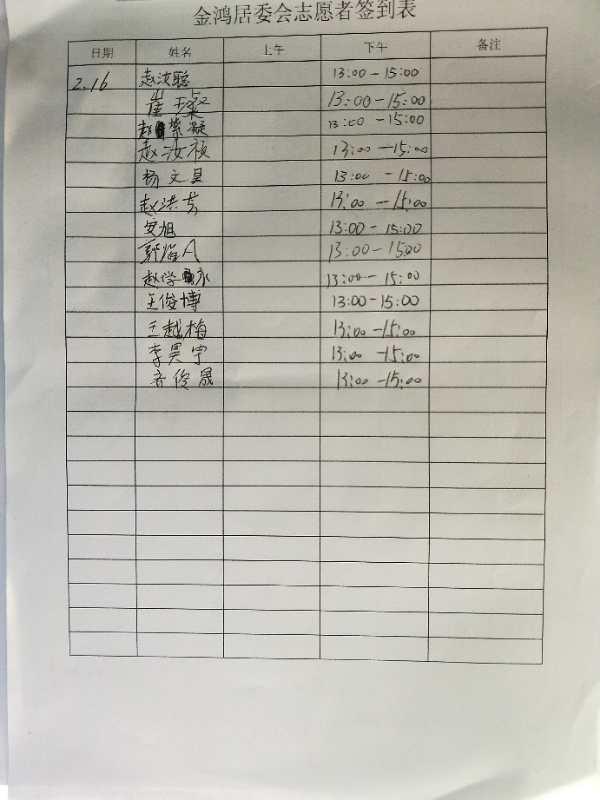 金鸿居委会志愿者签到表
日期 姓名 上午 下午 备注
2.16 赵汝聪 13:00-15:00
崔玉粲 13:00-15:00
赵紫凝 13:00-15:00
赵汝祯 13:00-15:00
杨文昌 13:00-15:00
赵洪芳 13:00-15:00
安旭 13:00-15:00
13:00-1500
赵学永 13:00-15:00
王俊博 13:00-15:00
王越梅 13:00-15:00
李昊宇 13:00-15:00
齐俊晟 13:00-15:00